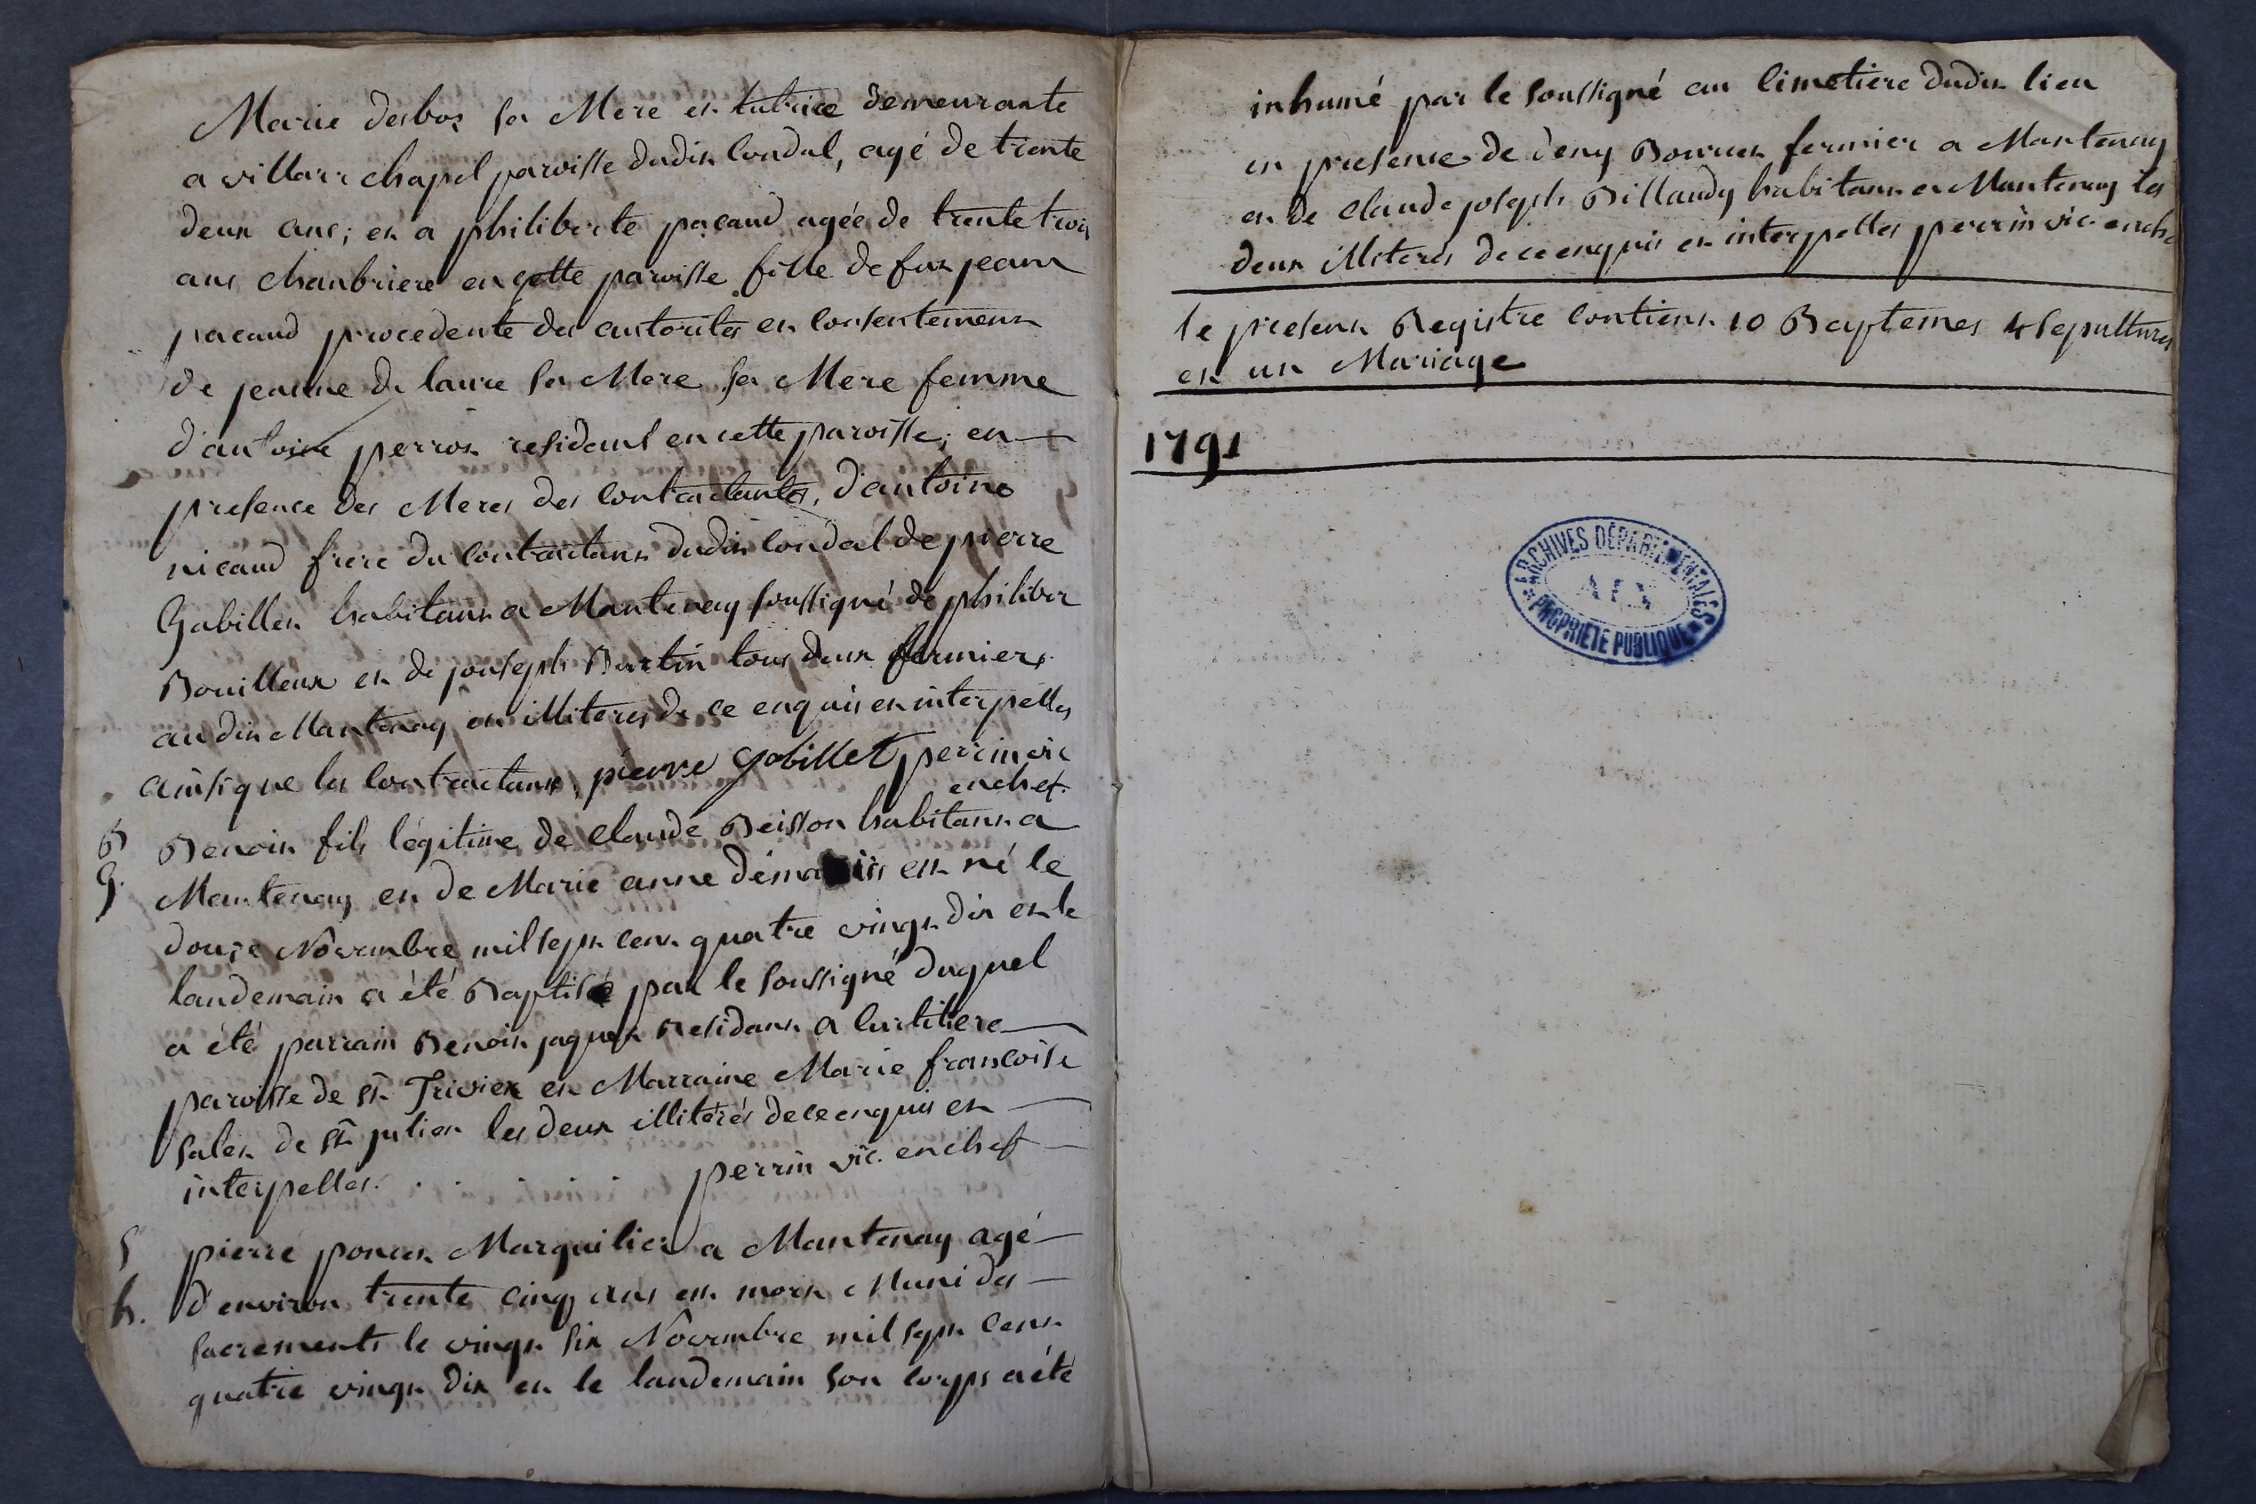 Marie desbos sa Mere et tutrice demeurante
a villarr chapel paroisse dudit Condal, agé de trente
deux ans; et a philiberte pacaud agée de trente trois
ans chanbriere en cette paroisse fille de fut jean
pacaud procedente des autorites et consentement
de jeanne de laure sa Mere sa Mere femme
d'antoine perrot residant en cette paroisse; en
presence des Meres des contractants, d'antoine
nicaud frere du contractant dudit Condal de pierre
Gabillet habitant a Mantenay soussigné de philiber
Bouilloux et de jouseph Burtin tous deux fermiers
au dit Mantenay et illiteres de ce enquis et interpelles
ainsi que les contractans, pierre gobillet perrin vic
enchef.
B Benoit fils légitime de Claude Beisson habitant a
9. Mantenay et de Marie anne est né le
douze Novembre mil sept cent quatre vingt dix et le
landemain a été Baptisé par le soussigné duquel
a été parrain Benoit jaquet Residant a Curtiliere
paroisse de st Trivier et Marraine Marie francoise
salet de st julien les deux illitérés de ce enquis et
interpelles. . . . . . perrin vic. enchef
S pierre poncet Marguilier a Mantenay agé
h. d'environ trente cinq ans est mort Muni des
sacrements le vingt six Novembre mil sept cent
quatre vingt dix et le landemain son corps a été
inhumé par le soussigné au Cimetiere dudit lieu
en presence de deny Bourcet fermier a Mantenay
et de Claude joseph Billaudy habitant a Mantenay les
deux illiterés de ce enquis et interpelles perrin vic. enche
le present Registre contient 10 Baptemes 4 sepultures
et un Mariage
1791
ARCHIVES DÉPARTEMENTALES
AIN
PROPRIÉTÉ PUBLIQUE